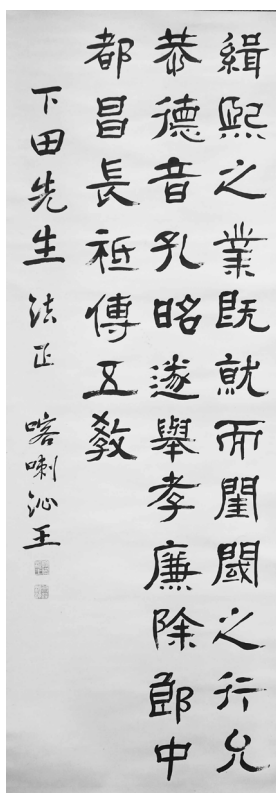 緝熙之業既就而閨閾之行允
恭德音孔昭遂舉孝廉除郎中
都昌長祗傅五教
下田先生 法正 喀喇沁王